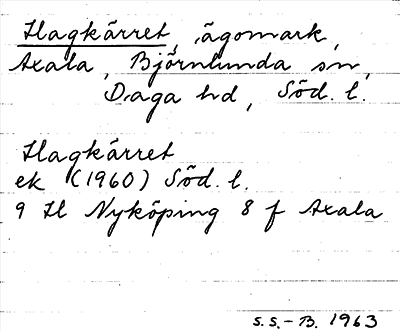 Hagkärret, ägomark,
Axala, Björnlunda sn,
Daga hd, Söd. l.
Hagkärret
ek (1960) Söd. l.
9 H Nyköping 8 f Axala
S.S.-B. 1963